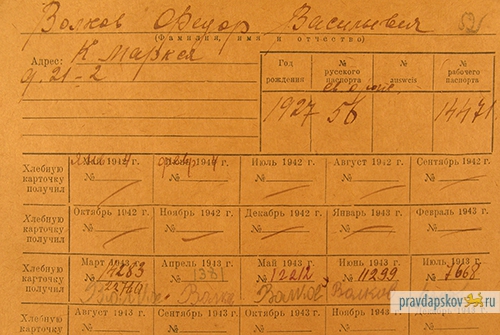 Волков Федор Васильевич
(Фамилия, имя и отчество)
Адрес: К Маркса
д 21-2
Год рождения
№ русского паспорта
№ ausweis
№ рабочего паспорта
1927 56 14471
Хлебную карточку получил
Июль 1942 г. Август 1942 г. Сентябрь 1942 г.
№ № № № №
Хлебную карточку получил
Октябрь 1942 г. Ноябрь 1942 г. Декабрь 1942 г. Январь 1943 г. Февраль 1943 г.
№ № № № №
Хлебную карточку получил
Март 1943 г. Апрель 1943 г. Май 1943 г. Июнь 1943 г. Июль 1943 г.
№ 14283 № 1381 № 12212 № 11299 № 7668
Волков
Хлебную карточку
Август 1943 г. Сентябрь 1943 г. Октябрь 1943 г. Ноябрь 1943 г. Декабрь 1943 г.
pravdapskov.ru